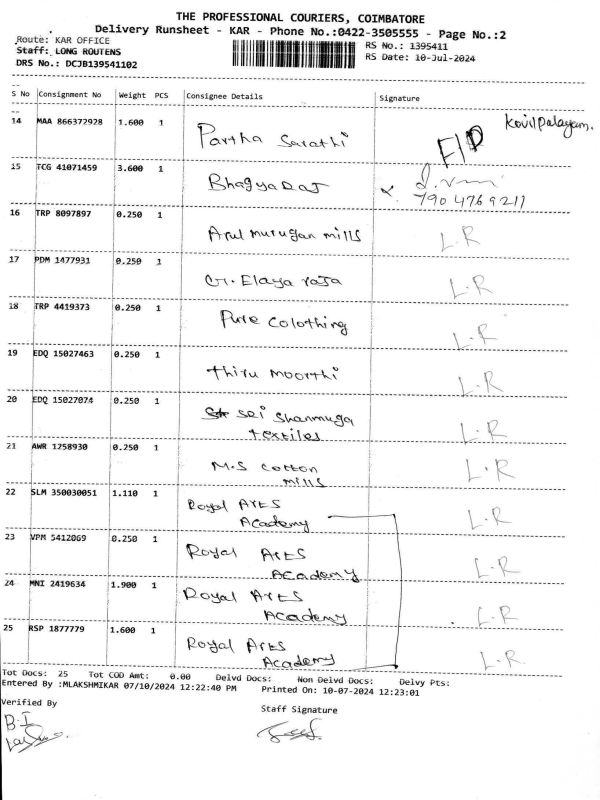 THE PROFESSIONAL COURIERS, COIMBATORE
Delivery Runsheet - KAR - Phone No.:0422-3505555 - Page No.:2
Route: KAR OFFICE
RS No.: 1395411
Staff: LONG ROUTENS
RS Date: 10-Jul-2024
DRS No.: DCJB139541102
S No Consignment No Weight PCS Consignee Details Signature
14 MAA 866372928 1.600 1 Partha Sarathi F/D Kovilpalayam.
15 TCG 41071459 3.600 1 Bhagyaraj
790 476 9211
16 TRP 8097897 0.250 1 Arul murugan mills L.R
17 PDM 1477931 0.250 1 G. Elaya raja L.R
18 TRP 4419373 0.250 1 Pure Colothing L.R
19 EDQ 15027463 0.250 1 Thiru moorthi L.R
20 EDQ 15027074 0.250 1 sei shanmuga
textiles L.R
21 AWR 1258930 0.250 1 M.S cotton
mills L.R
22 SLM 350030051 1.110 1 Royal Arts
Academy L.R
23 VPM 5412069 0.250 1 Royal Arts
Academy L.R
24 MNI 2419634 1.900 1 Royal Arts
Academy L.R
25 RSP 1877779 1.600 1 Royal Arts
Academy L.R.
Tot Docs: 25 Tot COD Amt: 0.00 Delvd Docs: Non Delvd Docs: Delvy Pts:
Entered By :MLAKSHMIKAR 07/10/2024 12:22:40 PM Printed On: 10-07-2024 12:23:01
Verified By
Staff Signature
B.I